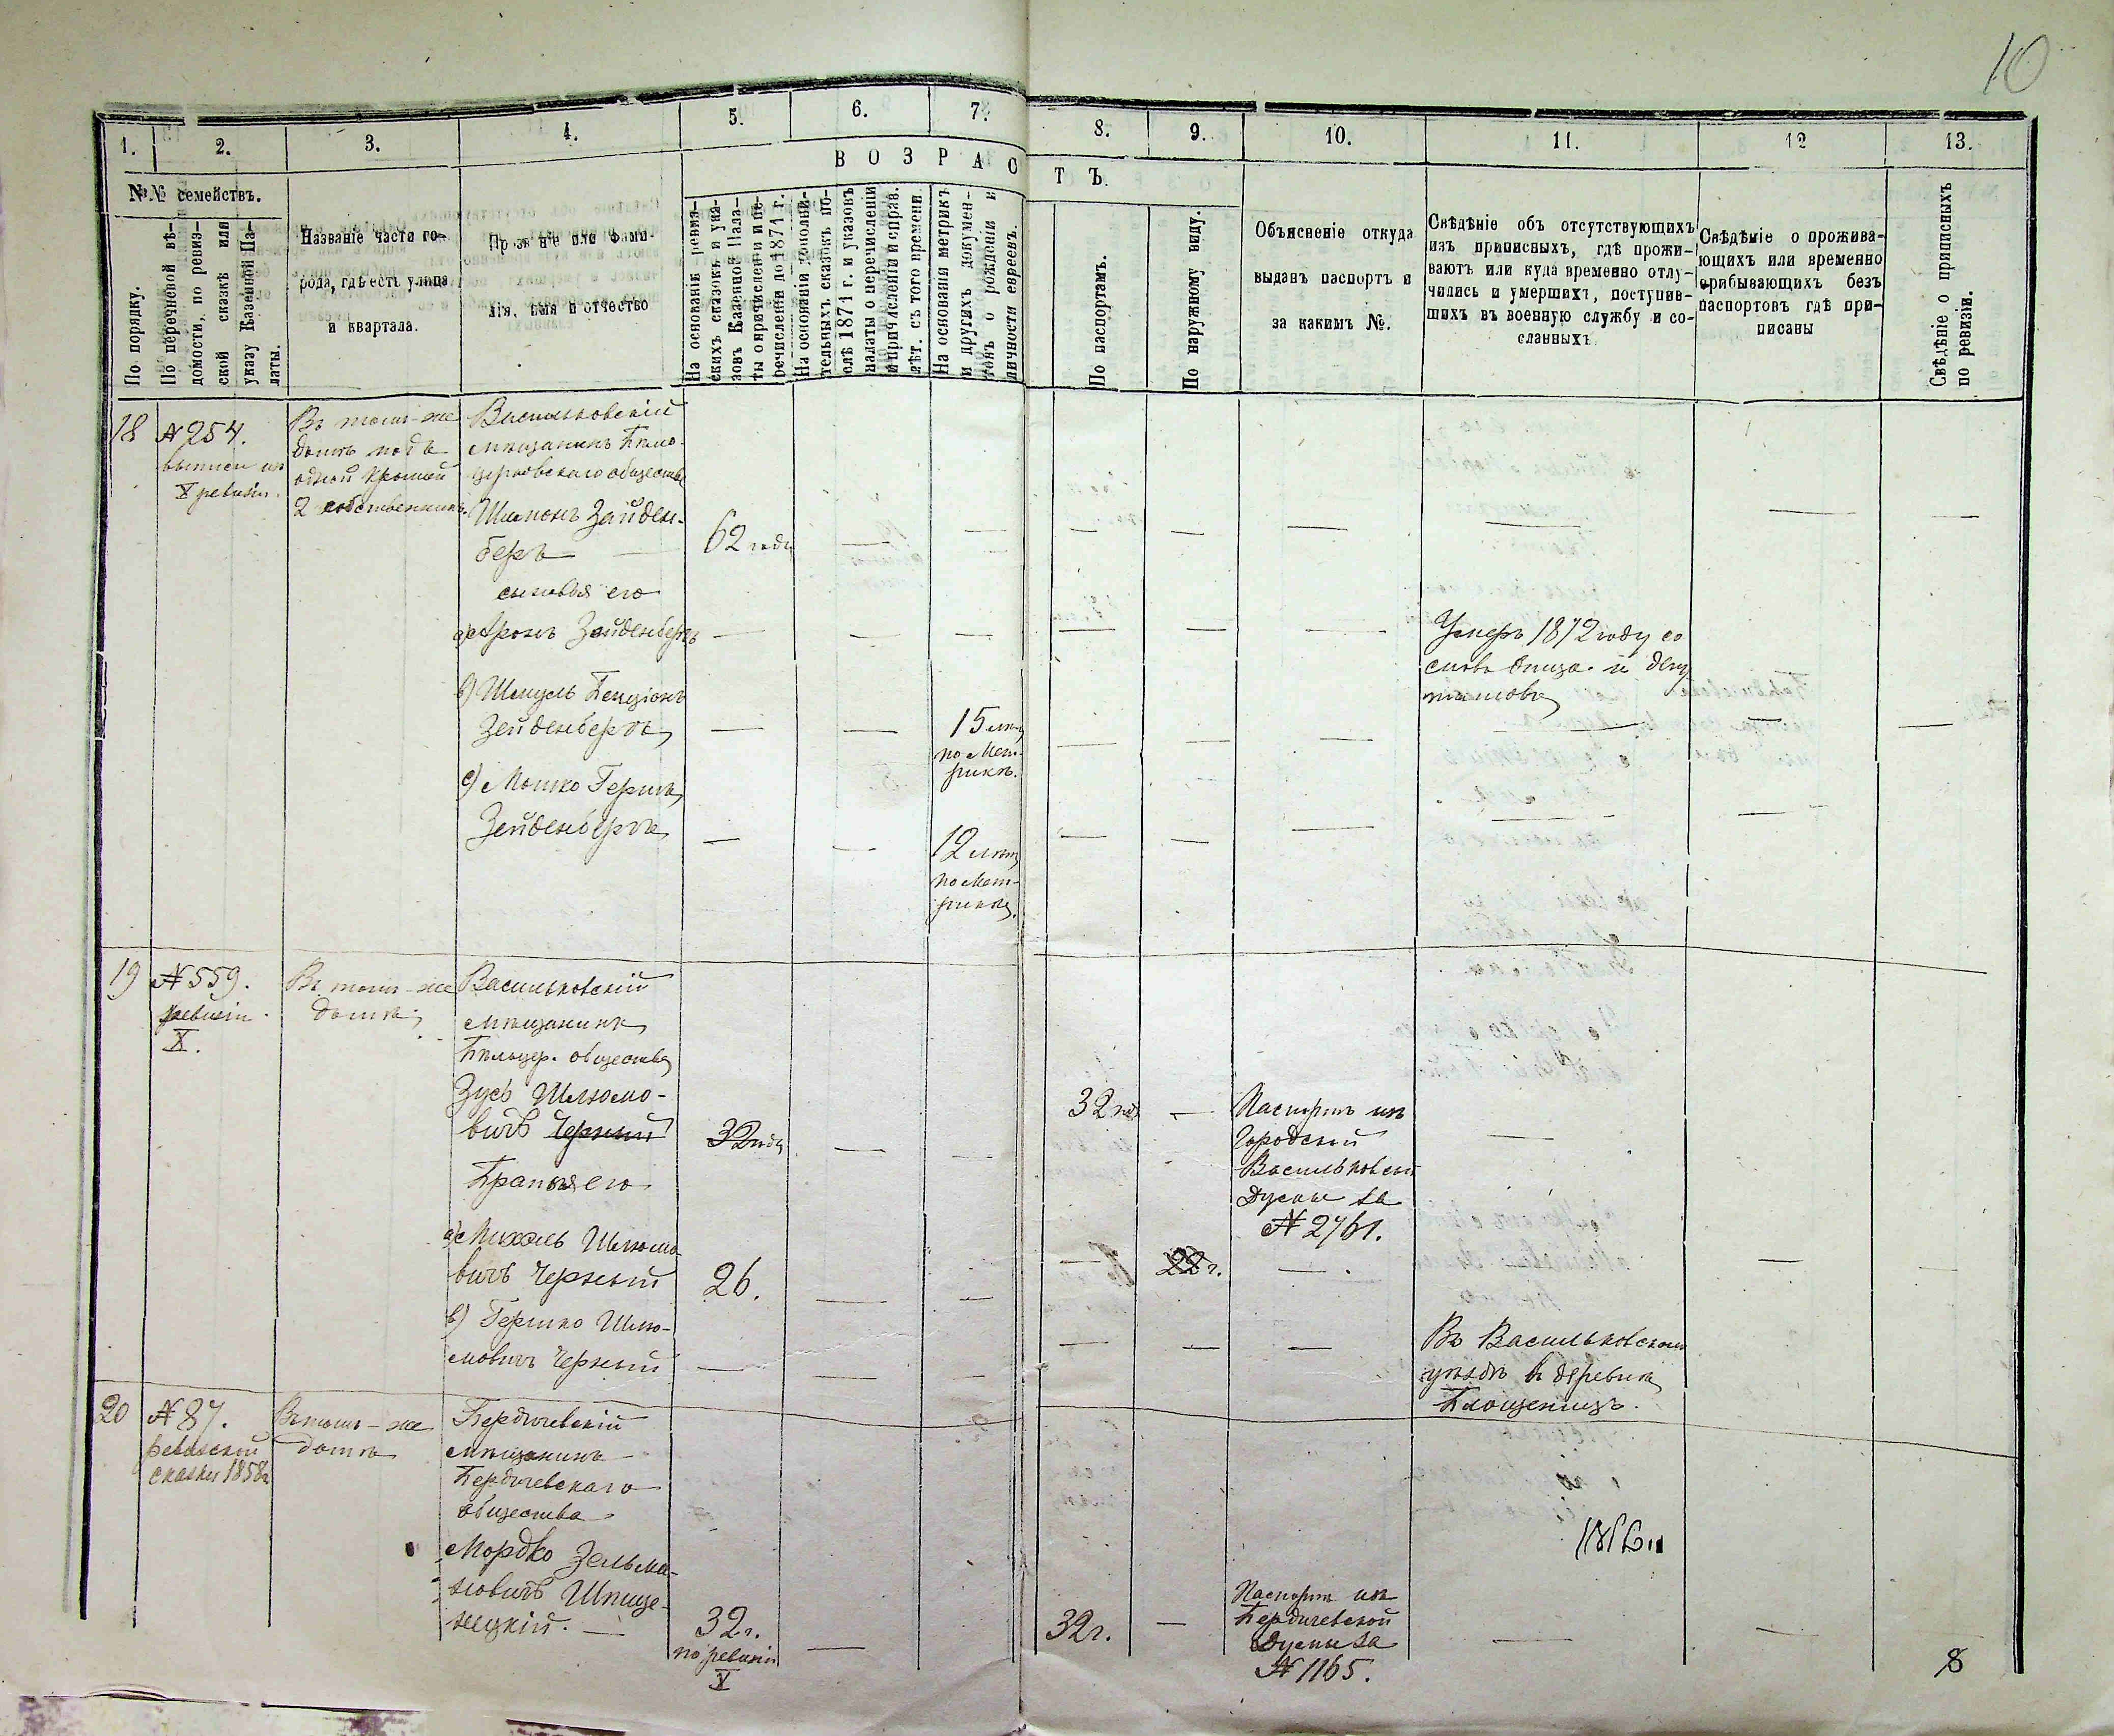 10
1.
2.
3.
4.
5.
6.
7.
8.
9.
10.
11.
12
13.
В О З Р А С Т Ъ.
№№ семействъ.
По порядку.
По перечневой вѣ-
домости, по ревиз-
ской сказкѣ или
указу Казенной Па-
латы.
Названіе части го-
рода, гдѣ есть улица
и квартала.
Прозваніе или фами-
лія, имя и отчество
На основаніи ревиз-
скихъ сказокъ и ука-
зовъ Казенной Пала-
ты о причисленіи и пе-
речисленіи до 1871 г.
На основаніи дополни-
тельныхъ сказокъ по-
слѣ 1871 г. и указовъ
палаты о перечисленіи
и причисленіи и справ.
лѣт. съ того времени.
На основаніи метрикъ
и другихъ докумен-
товъ о рожденіи и
личности евреевъ.
По паспортамъ.
По наружному виду.
Объясненіе откуда
выданъ паспортъ и
за какимъ №.
Свѣдѣніе объ отсутствующихъ
изъ приписныхъ, гдѣ прожи-
ваютъ или куда временно отлу-
чились и умершихъ, поступив-
шихъ въ военную службу и со-
сланныхъ.
Свѣдѣніе о прожива-
ющихъ или временно
прибывающихъ безъ
паспортовъ гдѣ при-
писаны
Свѣдѣніе о приписныхъ
по ревизіи.
18
№ 254.
выписи из
X ревизіи.
Въ томъ-же
домѣ подъ
одной крышей
2 собственникъ.
Васильковскій
мѣщанинъ Бѣло-
церковскаго общества
Шимонъ Зайден-
беръ
62 года
сыновья его
а) Аронъ Зейденбергъ
Умеръ 1872 году со
словъ отца и депу
татовъ
в) Шмуль Бенціонъ
Зейденбергъ
15 лѣтъ
по Мет-
рикѣ.
с) Мошко Гершъ
Зейденбергъ
12 лѣтъ
по Мет-
рикѣ.
19
№ 559.
ревизіи
X.
Въ томъ-же
домѣ
Васильковскій
мѣщанинъ
Бѣлоцер. общества
Зусь Шлемо-
вичъ Черный
32 года
32 года
Паспортъ изъ
Городской
Васильковской
Думы за
№ 2761.
Братья его
а) Михель Шлемо-
вичъ Черный
26.
22 г.
в) Гершко Шлемо-
мовичъ Черный
Въ Васильковскомъ
уѣздѣ въ деревнѣ
20
№ 87.
ревизской
сказки 1858 г
Въ томъ-же
домѣ
Бердичевскій
мѣщанинъ
Бердичевскаго
общества
Мордко Зельма-
новичъ Шпиче-
нецкій.
32 г.
по ревизіи
X
32 г.
Паспортъ изъ
Бердичевской
Думы за
№ 1165.
8